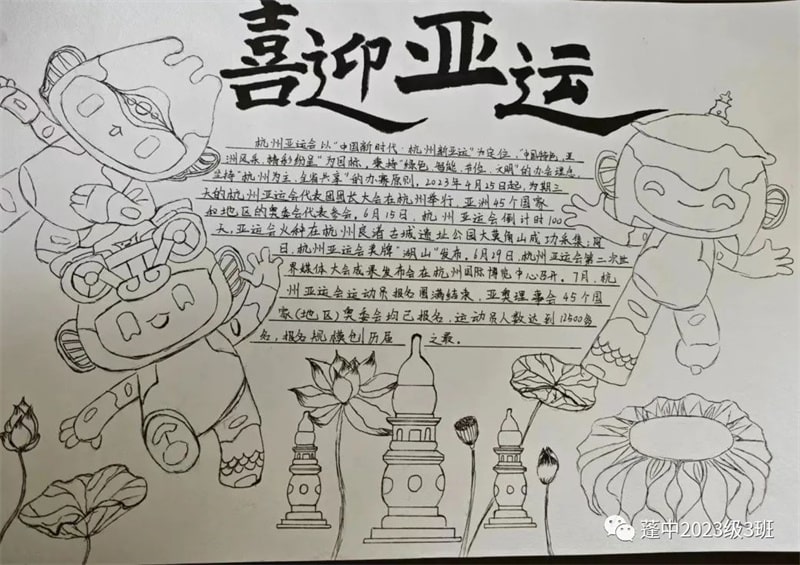 喜迎亚运
杭州亚运会以“中国新时代·杭州新亚运”为定位,“中国特色,亚
洲风采,精彩纷呈”为目标,秉持“绿色,智能,节俭,文明”的办会理念,
坚持“杭州为主,全省共享”的办赛原则。2023年4月25日起,为期三
天的杭州亚运会代表团团长大会在杭州举行,亚洲45个国家
和地区的奥委会代表参会。6月15日,杭州亚运会倒计时100
天,亚运会火种在杭州良渚古城遗址公园大莫角山成功采集;同
日,杭州亚运会奖牌“湖山”发布。6月29日,杭州亚运会第二次世
界媒体大会成果发布会在杭州国际博览中心召开。7月,杭
州亚运会运动员报名圆满结束,亚奥理事会45个国
家(地区)奥委会均已报名,运动员人数达到12500多
名,报名规模创历届之最。
蓬中2023级3班